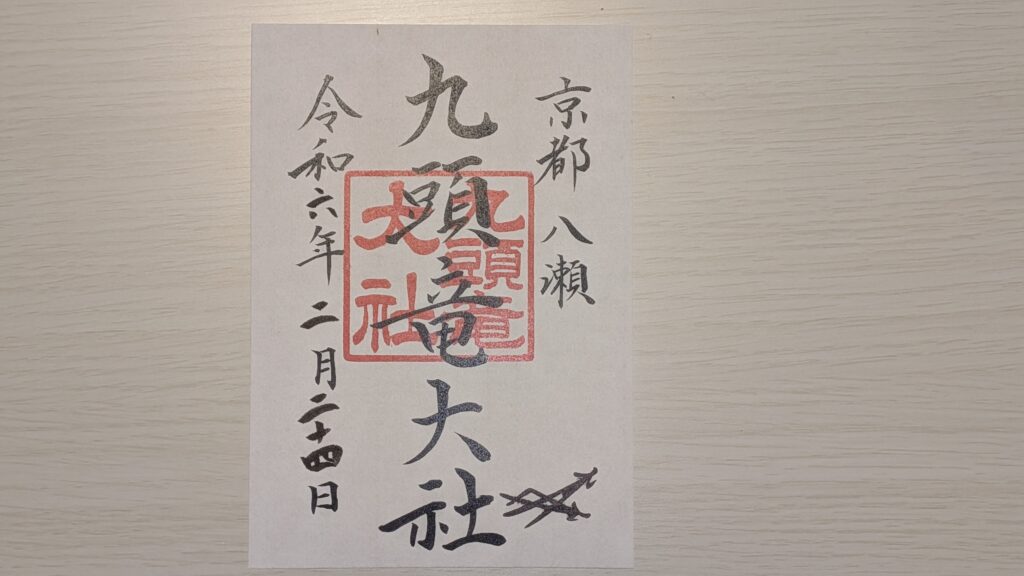 京都 八瀬
九頭竜大社
九頭竜
大社
令和六年 二月二十四日